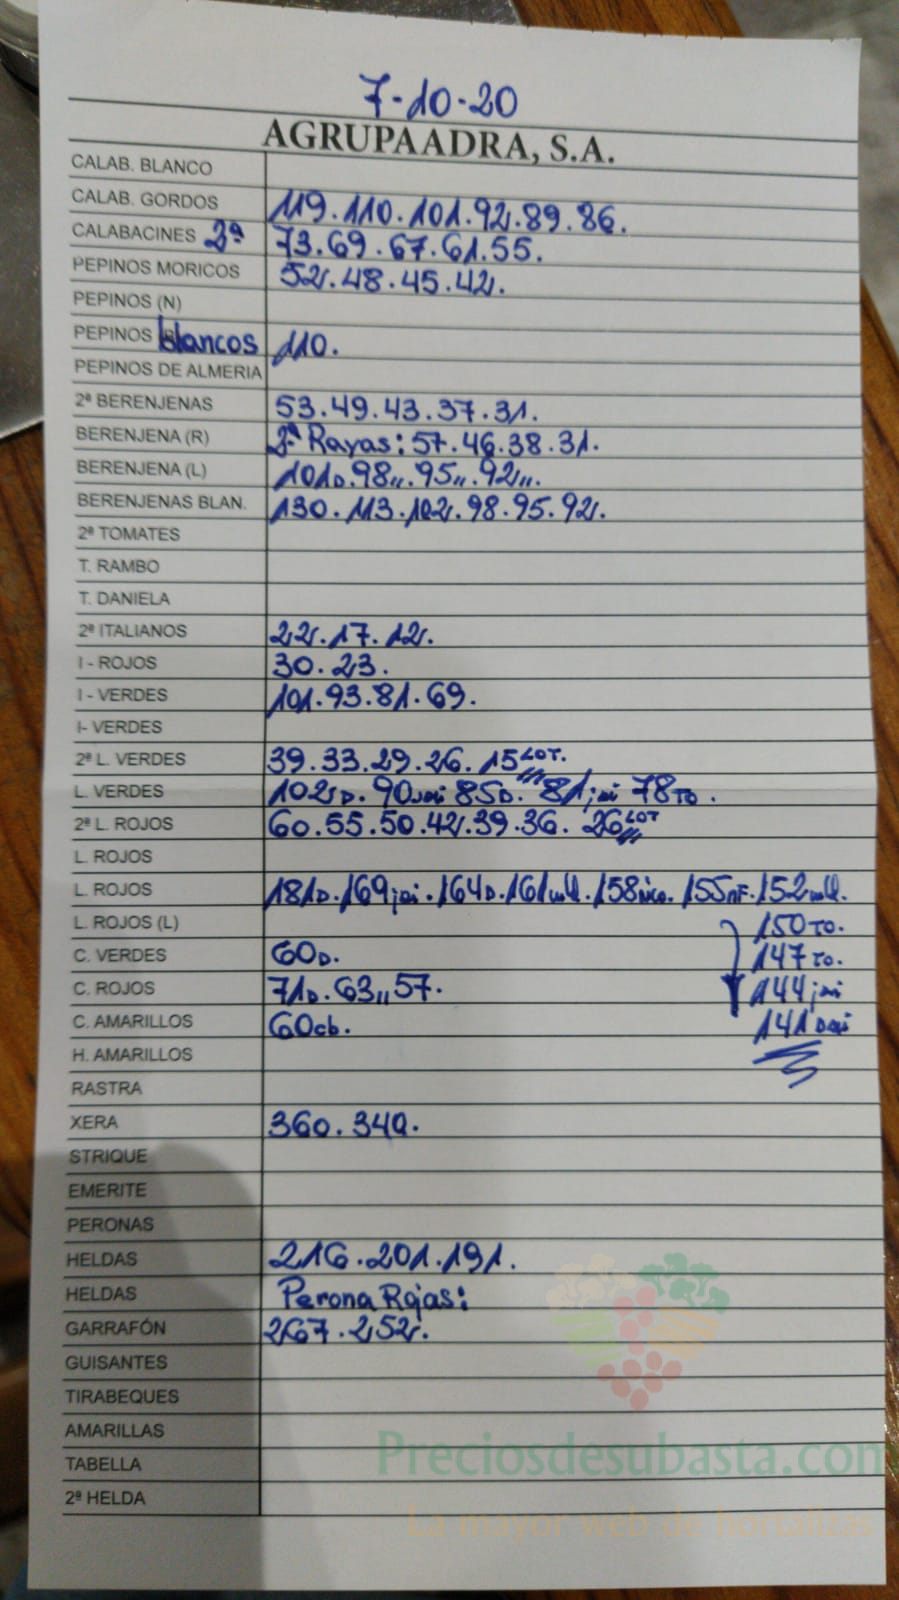 7-10-20
AGRUPAADRA, S.A.
CALAB. BLANCO
CALAB. GORDOS 119.110.101.92.89.86.
CALABACINES 2ª 73.69.67.61.55.
PEPINOS MORICOS 52.48.45.42.
PEPINOS (N)
PEPINOS blancos 110.
PEPINOS DE ALMERIA
2ª BERENJENAS 53.49.43.37.31.
BERENJENA (R) 2ª Rayas: 57.46.38.31.
BERENJENA (L) 101D.98„.95„.92„.
BERENJENAS BLAN. 130.113.102.98.95.92.
2ª TOMATES
T. RAMBO
T. DANIELA
2ª ITALIANOS 22.17.12.
I - ROJOS 30.23.
I - VERDES 101.93.81.69.
I- VERDES
2ª L. VERDES 39.33.29.26.15 LOT.
L. VERDES 102D. 90 85D. 81jai 78TO.
2ª L. ROJOS 60.55.50.42.39.36. 26 LOT
L. ROJOS
L. ROJOS 181D.169jai.164D.161.158.155nF.152
L. ROJOS (L) 150TO.
C. VERDES 60D. 147TO.
C. ROJOS 71D.63„57. 144jai
C. AMARILLOS 60cb. 141
H. AMARILLOS
RASTRA
XERA 360.340.
STRIQUE
EMERITE
PERONAS
HELDAS 216.201.191.
HELDAS Perona Rojas:
GARRAFÓN 267.252.
GUISANTES
TIRABEQUES
AMARILLAS
Preciosdesubasta.com
TABELLA
2ª HELDA
La mayor web de hortalizas